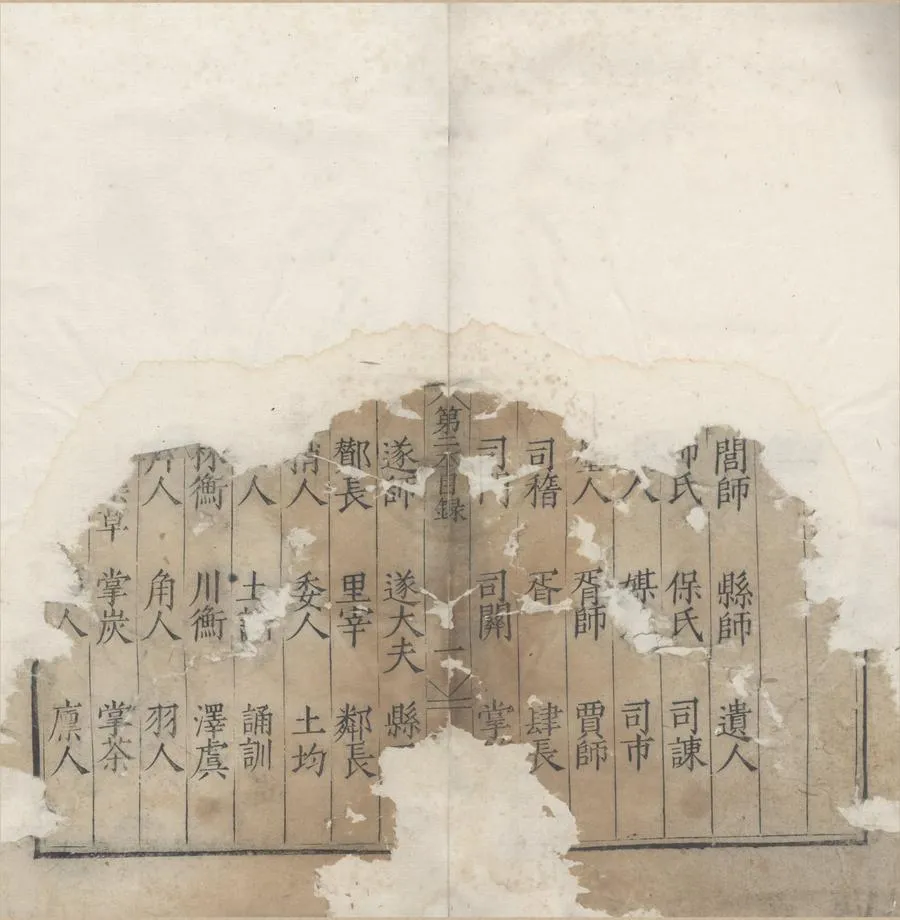 閭師 縣師 遺人
氏 保氏 司諫
人 媒 司市
人 胥師 賈師
司稽 胥 肆長
司門 司關 掌
第二本目錄 一
遂師 遂大夫 縣
酇長 里宰 鄰長
人 委人 土均
人 土訓 誦訓
林衡 川衡 澤虞
人 角人 羽人
草 掌炭 掌荼
人 廩人